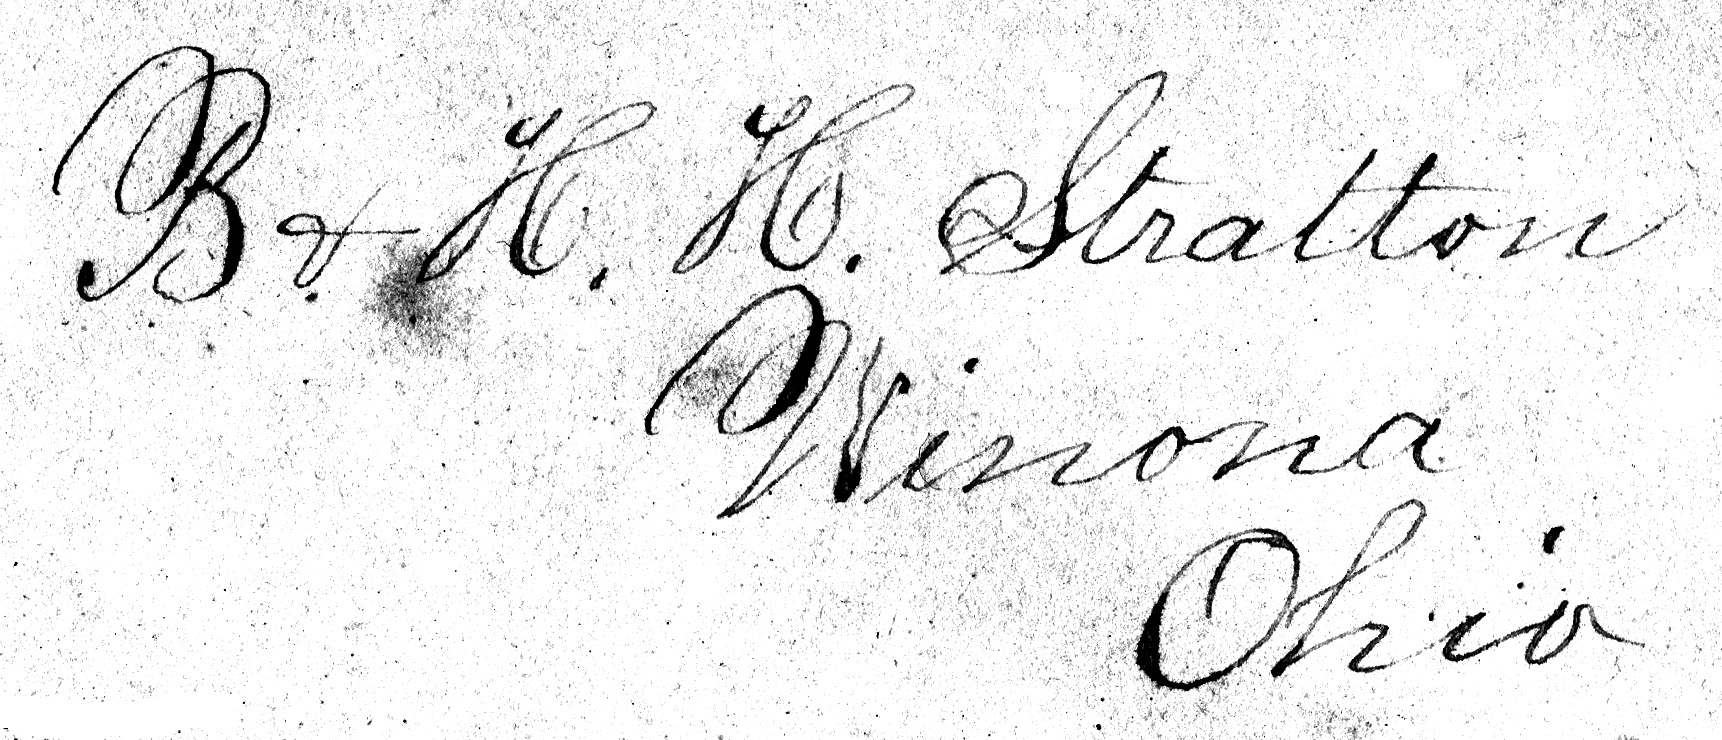 B & H. H. Stratton
Winona
Ohio